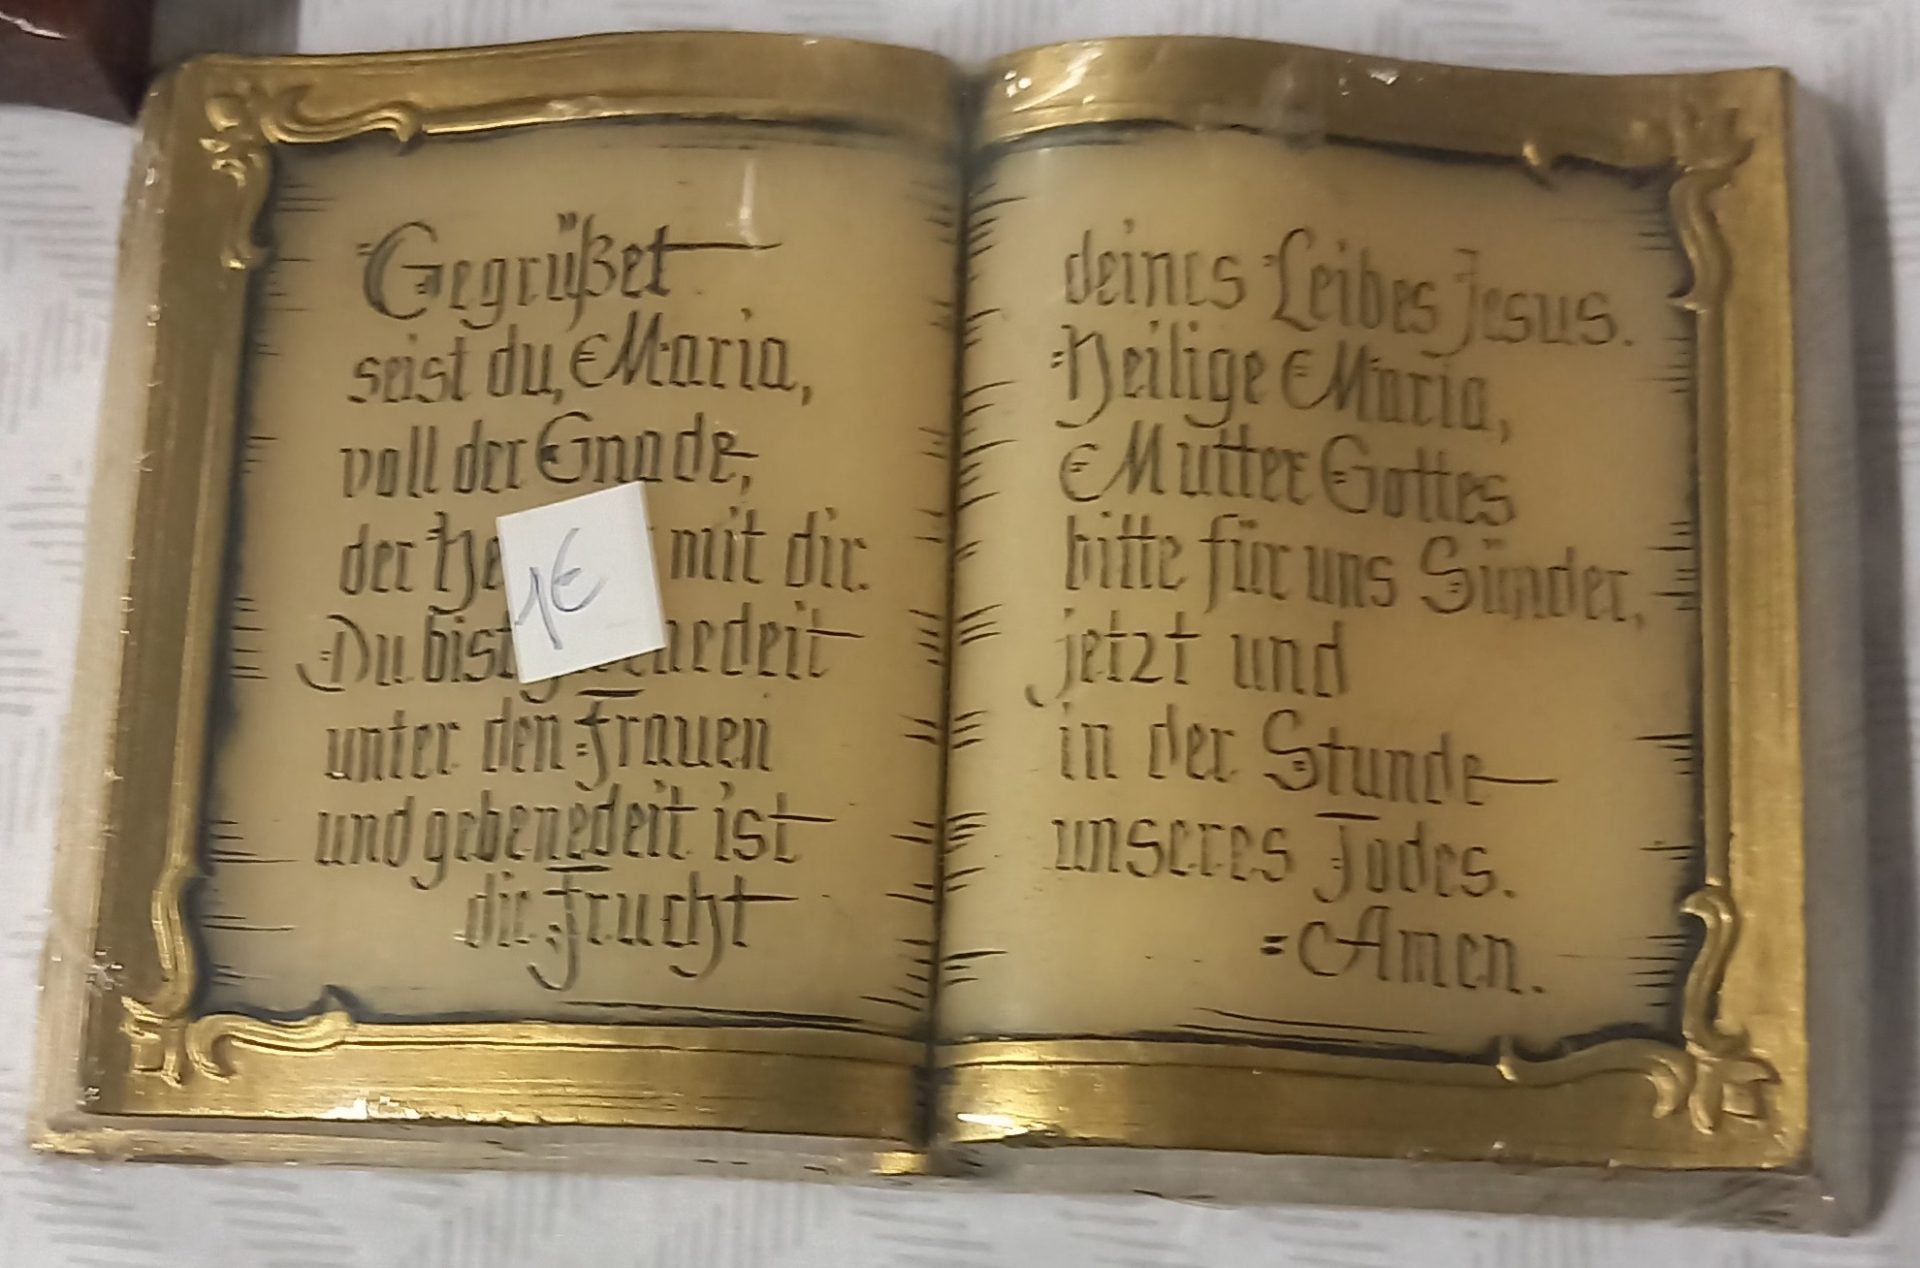 Gegrüßet
seist du, Maria,
voll der Gnade,
der mit dir.
Du bist
unter den Frauen
und gebenedeit ist
die Frucht
1€
deines Leibes Jesus.
Heilige Maria,
Mutter Gottes
bitte für uns Sünder,
jetzt und
in der Stunde
unseres Todes.
Amen.